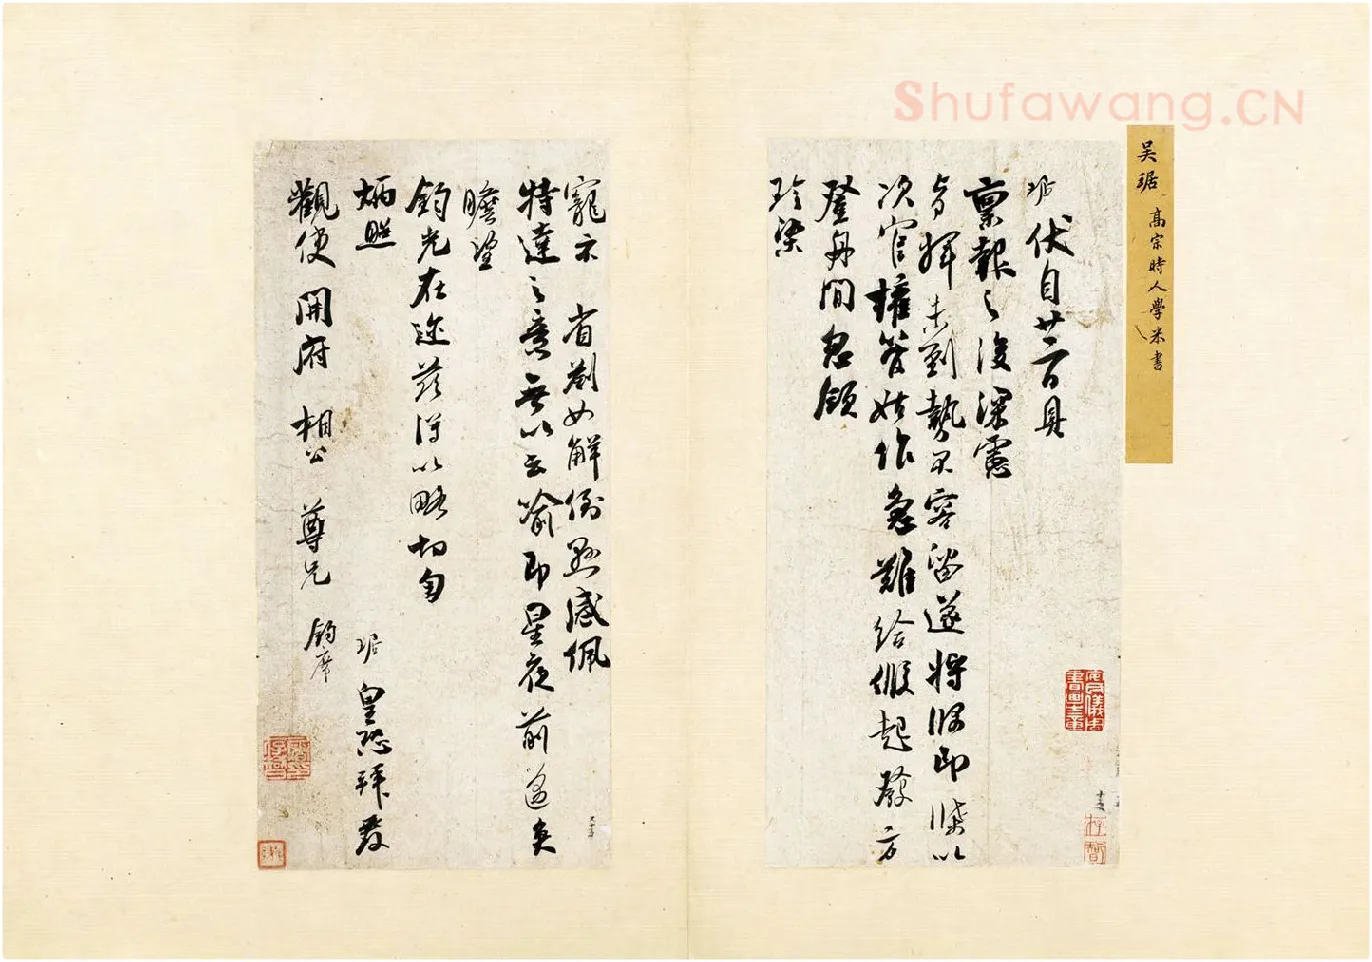 Shufawang.CN
吴琚 高宗時人學米書
琚伏自廿六日具
禀報之後深慮
未到勢不容留遂將牒即牒以
次官權管始作急難給假起發方
登舟間忽領
珍染
寵示 省劄如解倒懸感佩
特達之意無以云喻即星夜前邁矣
瞻望
鈞光在迩茲得以略切匄
炳照
琚皇恐拜覆
觀使開府相公尊兄 鈞席